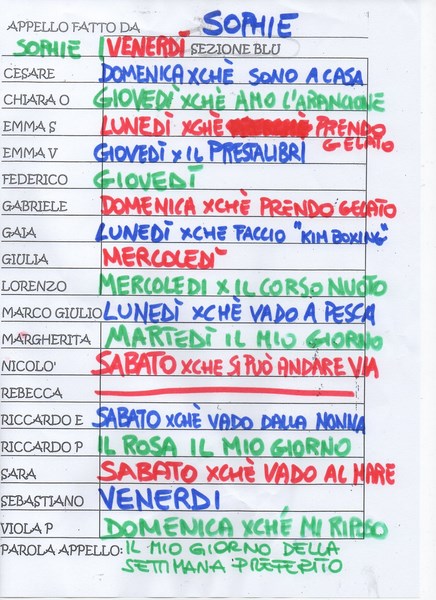 APPELLO FATTO DA SOPHIE
SOPHIE VENERDÌ SEZIONE BLU
CESARE DOMENICA XCHÈ SONO A CASA
CHIARA O GIOVEDÌ XCHÈ AMO L'ARANCIONE
EMMA S LUNEDÌ XCHÈ PRENDO GELATO
EMMA V GIOVEDÌ X IL PRESTALIBRI
FEDERICO GIOVEDÌ
GABRIELE DOMENICA XCHÈ PRENDO GELATO
GAIA LUNEDÌ XCHE FACCIO "KIM BOXING"
GIULIA MERCOLEDÌ
LORENZO MERCOLEDI X IL CORSO NUOTO
MARCO GIULIO LUNEDÌ XCHÈ VADO A PESCA
MARGHERITA MARTEDÌ IL MIO GIORNO
NICOLO' SABATO XCHE SI PUÒ ANDARE VIA
REBECCA
RICCARDO E SABATO XCHÈ VADO DALLA NONNA
RICCARDO P IL ROSA IL MIO GIORNO
SARA SABATO XCHÈ VADO AL MARE
SEBASTIANO VENERDI
VIOLA P DOMENICA XCHÉ MI RIPOSO
PAROLA APPELLO: IL MIO GIORNO DELLA
SETTIMANA PREFERITO